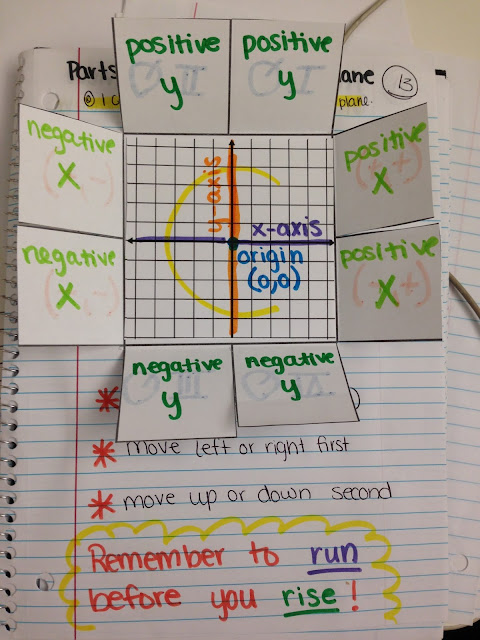 positive y
positive y
Parts
ane
13
I c
plane.
negative x
positive x
y-axis
x-axis
negative x
origin
(0,0)
positive x
negative y
negative y
move left or right first
move up or down second
Remember to run
before you rise!